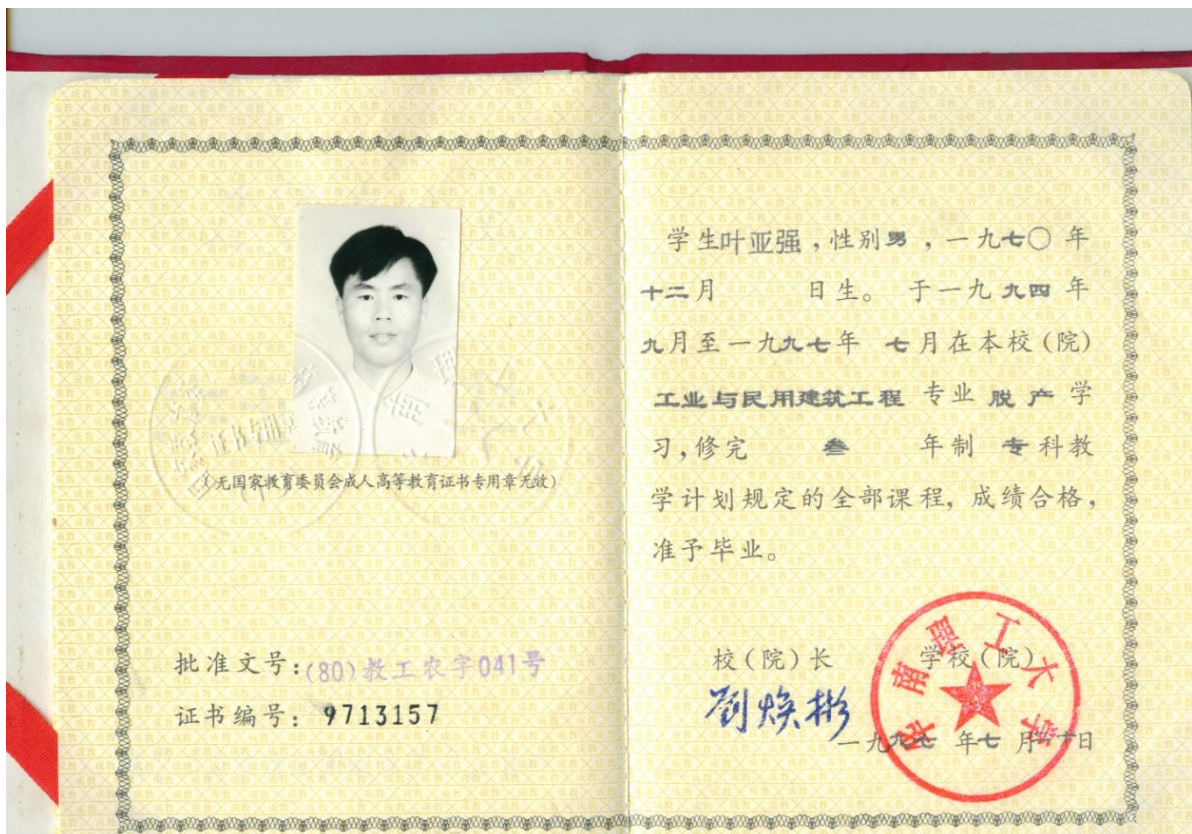 (无国家教育委员会成人高等教育证书专用章无效)
批准文号:(80)教工农字041号
证书编号: 9713157
学生叶亚强,性别男,一九七〇年
十二月 日生。于一九九四年
九月至一九九七年 七月在本校(院)
工业与民用建筑工程 专业 脱产 学
习,修完 叁 年制 专科教
学计划规定的全部课程,成绩合格,
准予毕业。
校(院)长 学校(院)
劉焕彬
华南理工大学
一九九七 年七 月 日